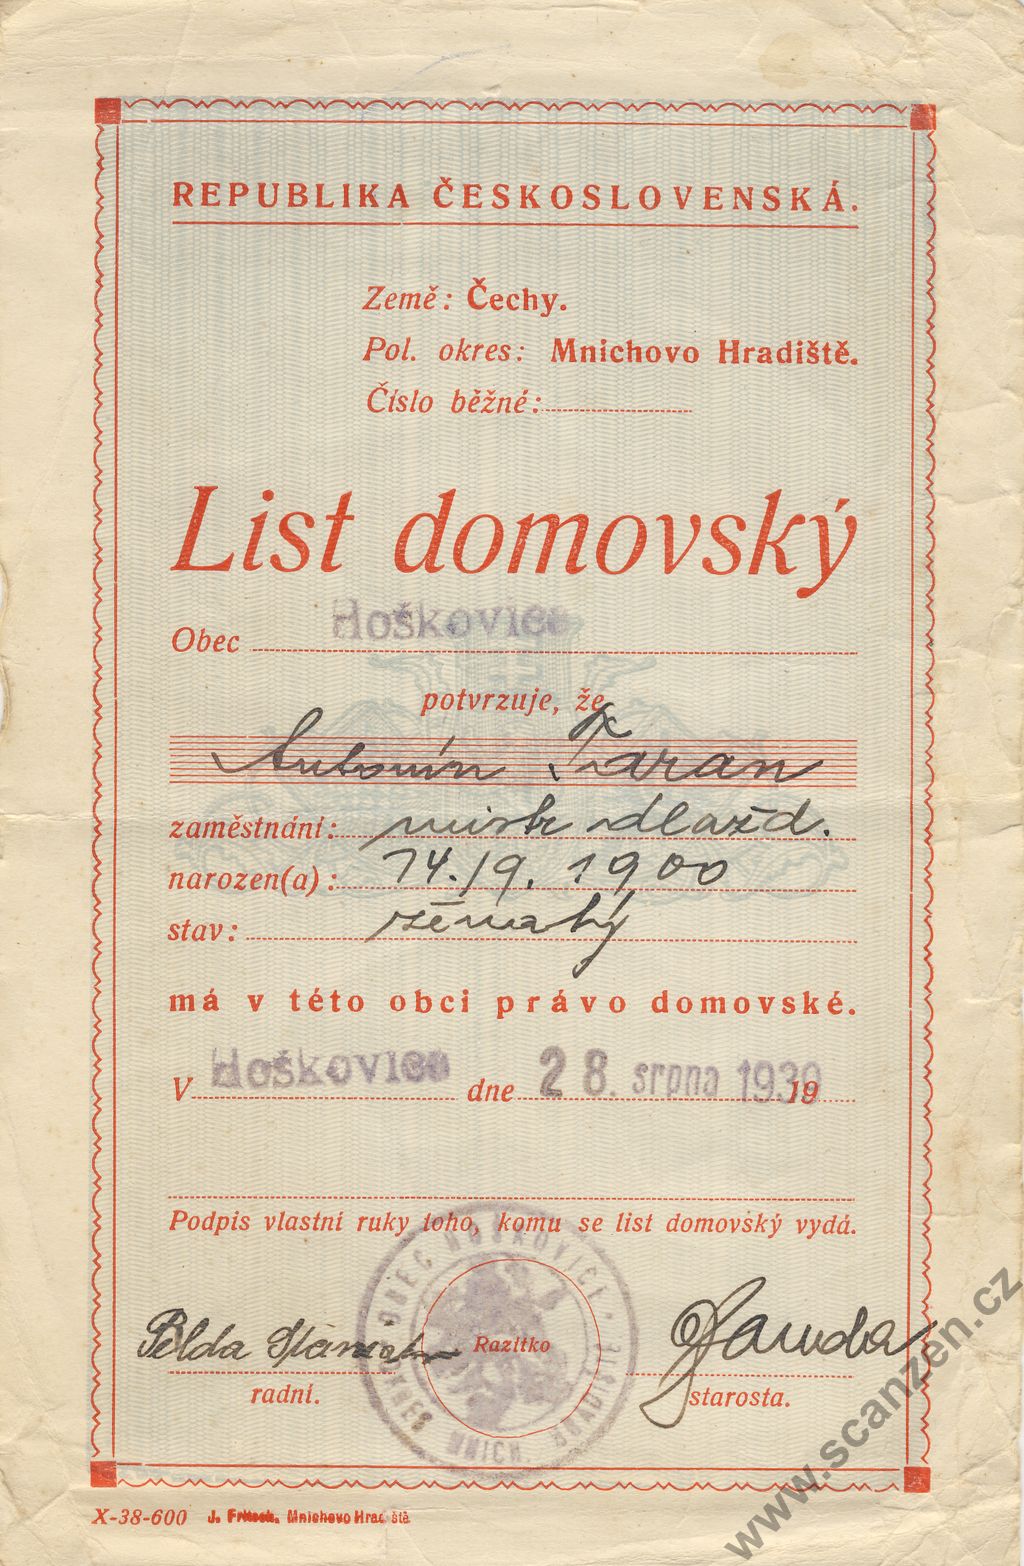 REPUBLIKA ČESKOSLOVENSKÁ.
Země: Čechy.
Pol. okres: Mnichovo Hradiště.
Číslo běžné:
List domovský
Obec Hoškovice
potvrzuje, že
Antonín Žaran
zaměstnání: mistr dlažd.
narozen(a): 14./9. 1900
stav: ženatý
má v této obci právo domovské.
V Hoškovice dne 28. srpna 1939 19
Podpis vlastní ruky toho, komu se list domovský vydá.
OBEC HOŠKOVICE
OKRES MNICH. HRADIŠTĚ
Razítko
Pelda
radní.
starosta.
X-38-600 J. Fritsch, Mnichovo Hradiště
www.scanzen.cz